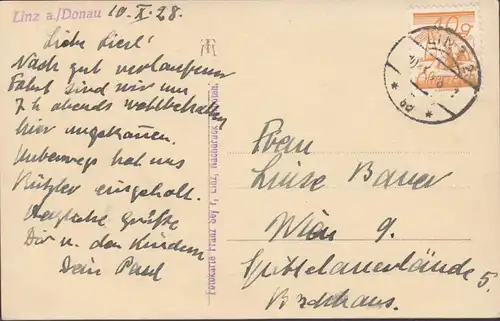 Linz a./Donau 10. X. 28.
Liebe Liesl!
Nach gut verlaufener
Fahrt sind wir um
7 h abends wohlbehalten
hier angekommen.
Unterwegs hat uns
eingeholt.
Herzliche Grüße
Dir u. den Kindern
Dein Paul
Fotokarte Franz Linz, Nachdruck
10g
LINZ 2
Frau
Luise Bauer
Wien 9.
Spittelauerlände 5.